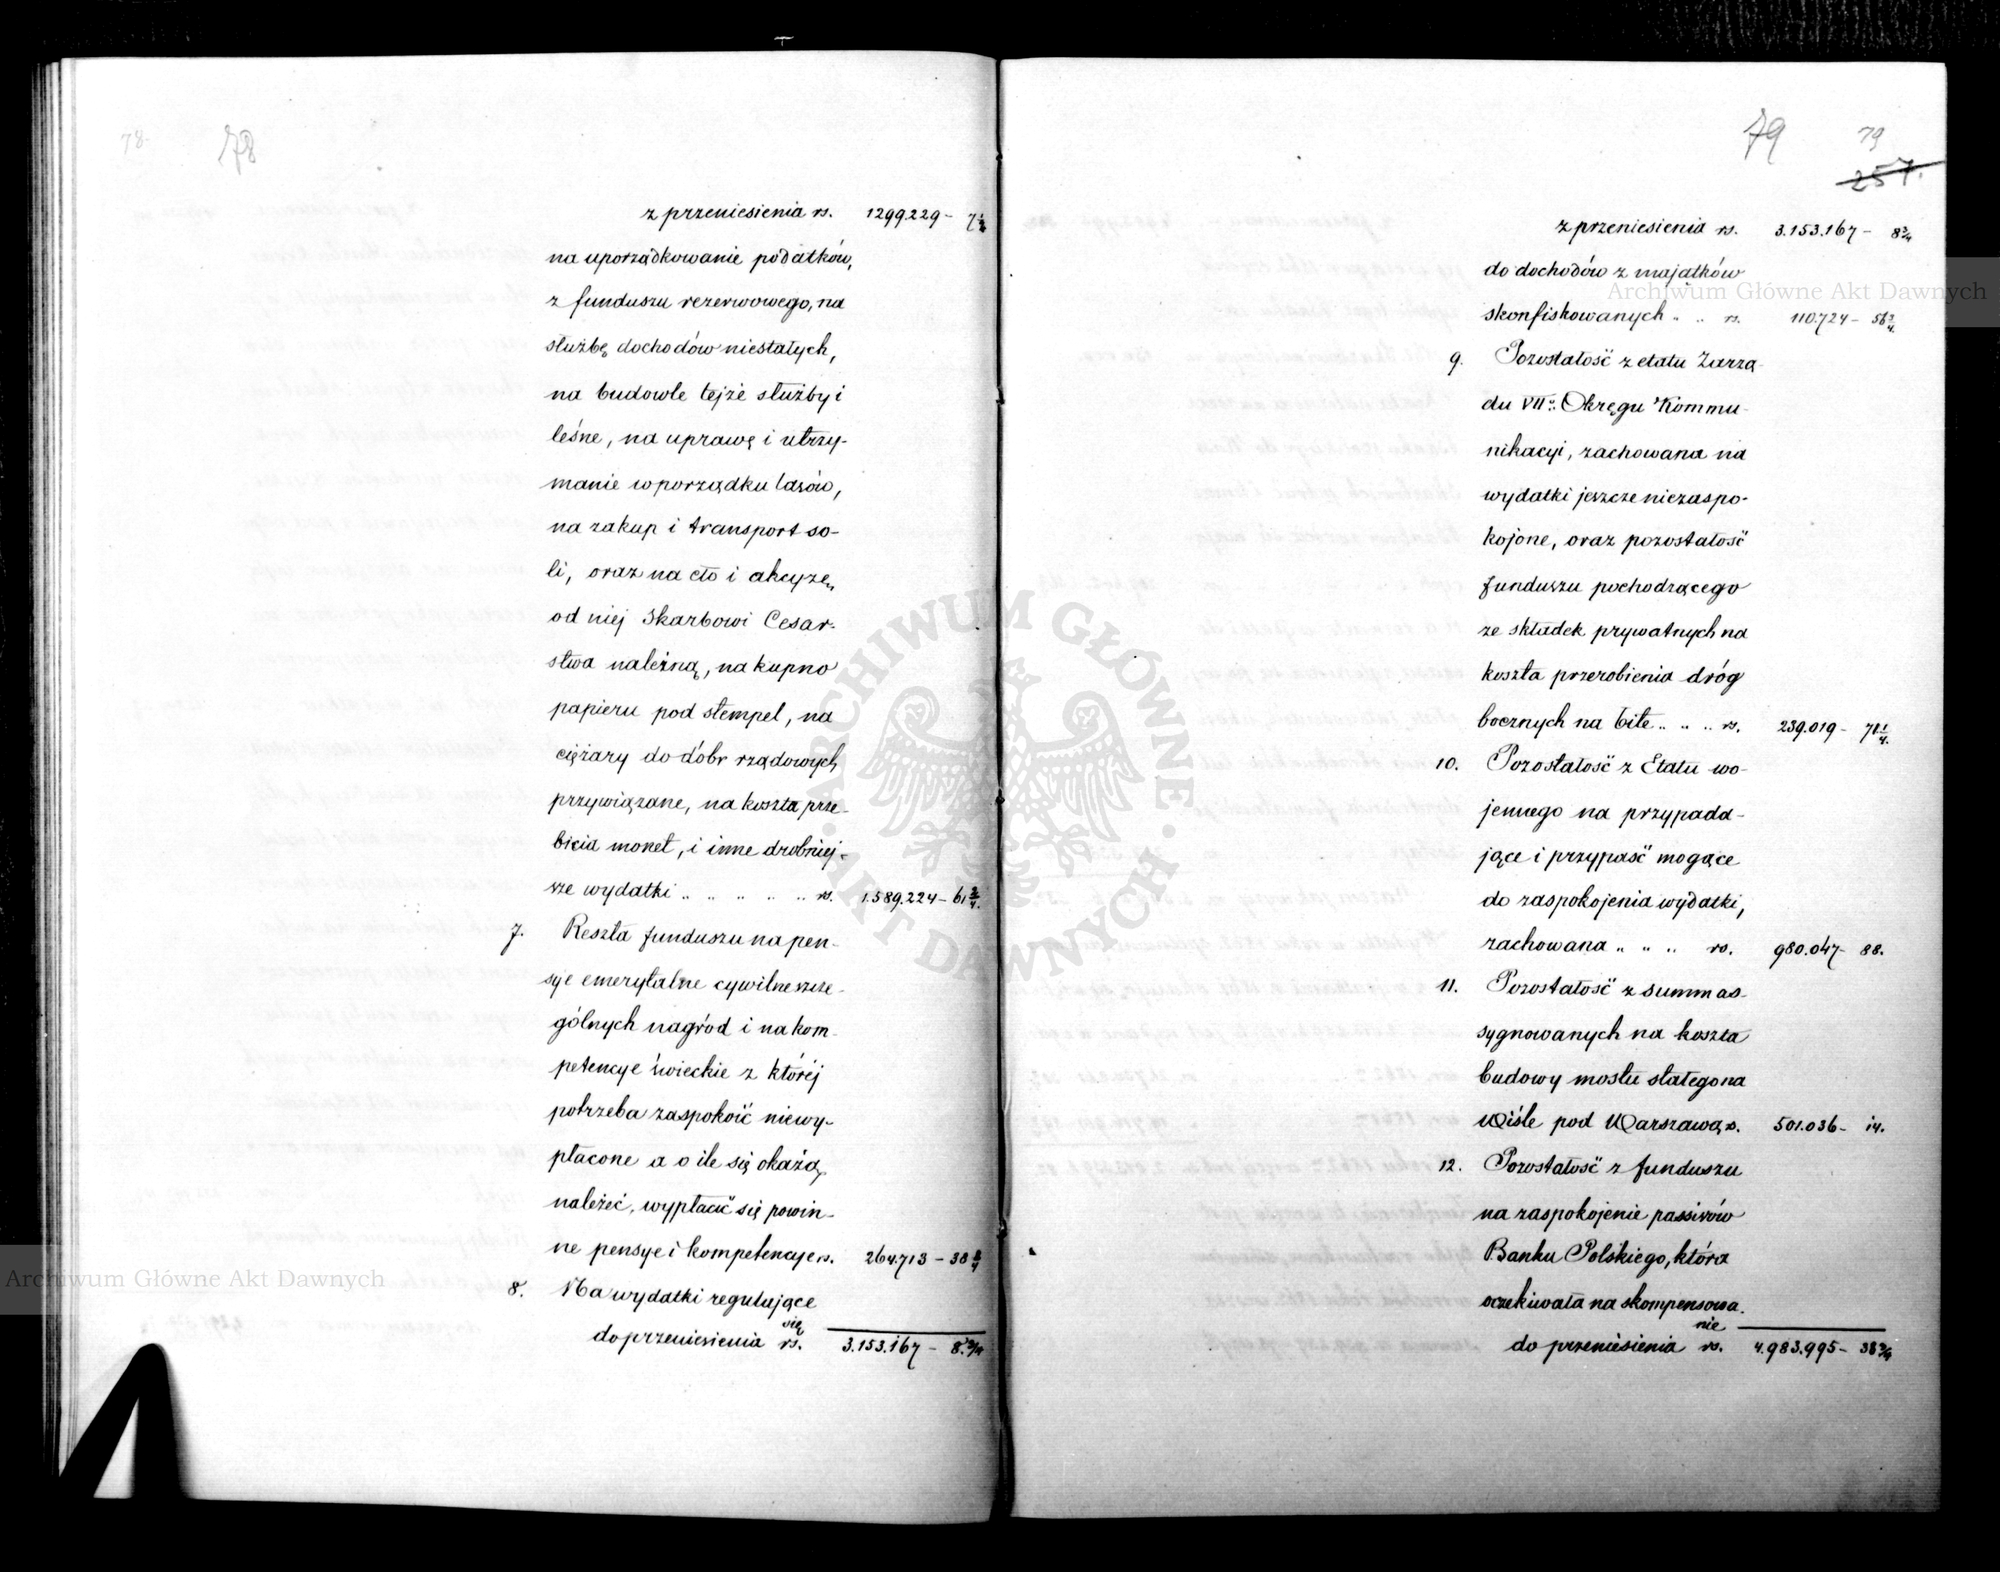 78
78
z przeniesienia rs. 1299.229 – 7 1/2
na uporządkowanie podatków,
z funduszu rezerwowego, na
służbę dochodów niestałych,
na budowle tejże służby i
leśne, na uprawę i utrzy-
manie w porządku lasów,
na zakup i transport so-
li, oraz na cło i akcyzę
od niej Skarbowi Cesar-
stwa należną, na kupno
papieru pod stempel, na
ciężary do dóbr rządowych
przywiązane, na koszta prze-
bicia monet, i inne drobniej-
sze wydatki „ „ „ „ „ rs. 1.589.224 – 61 3/4.
7. Reszta funduszu na pen-
syje emerytalne cywilne szcze-
gólnych nagród i na kom-
petencye świeckie z której
potrzeba zaspokoić niewy-
płacone a o ile się okażą
należeć, wypłacić się powin-
ne pensye i kompetencye rs. 264.713 – 38 3/4
8. Na wydatki regulujące
się
do przeniesienia rs. 3.153.167 – 8 3/4
79
79
257.
z przeniesienia rs. 3.153.167 – 8 3/4
do dochodów z majątków
skonfiskowanych „ „ rs. 110.724 – 56 3/4.
9. Pozostałość z etatu Zarzą
du VIIo: Okręgu Kommu-
nikacyi, zachowana na
wydatki jeszcze niezaspo-
kojone, oraz pozostałość
funduszu pochodzącego
ze składek prywatnych na
koszta przerobienia dróg
bocznych na bite „ „ „ rs. 239.019 – 71 1/4.
10. Pozostałość z Etatu wo-
jennego na przypada-
jące i przypaść mogące
do zaspokojenia wydatki,
zachowana „ „ „ rs. 980.047 – 88.
11. Pozostałość z summ as-
sygnowanych na koszta
budowy mostu stałego na
Wiśle pod Warszawą rs. 501.036 – 14.
12. Pozostałość z funduszu
na zaspokojenie passivów
Banku Polskiego, która
oczekiwała na skompensowa-
nie
do przeniesienia rs. 4.983.995 – 38 3/4
Archiwum Główne Akt Dawnych
Archiwum Główne Akt Dawnych
ARCHIWUM GŁÓWNE
AKT DAWNYCH